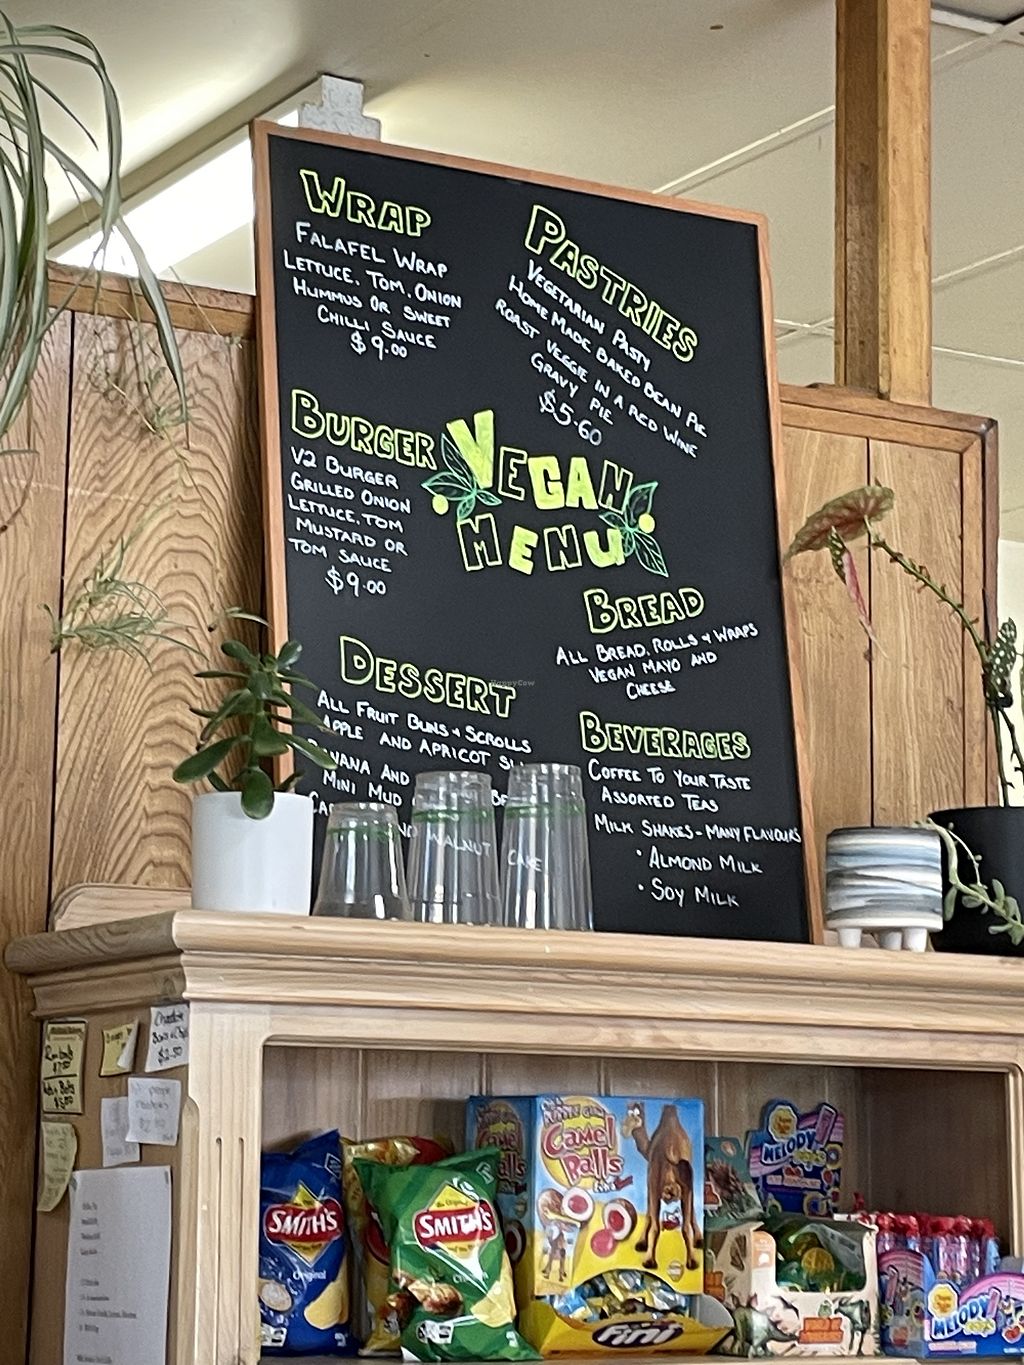 WRAP
FALAFEL WRAP
LETTUCE, TOM, ONION
HUMMUS OR SWEET
CHILLI SAUCE
$9.00
PASTRIES
VEGETARIAN PASTY
HOME MADE BAKED BEAN PIE
ROAST VEGGIE IN A RED WINE
GRAVY PIE
$5.60
BURGER
V2 BURGER
GRILLED ONION
LETTUCE, TOM
MUSTARD OR
TOM SAUCE
$9.00
VEGAN
MENU
BREAD
ALL BREAD, ROLLS + WRAPS
VEGAN MAYO AND
CHEESE
DESSERT
ALL FRUIT BUNS + SCROLLS
APPLE AND APRICOT
AND
MINI MUD
WALNUT CAKE
BEVERAGES
COFFEE TO YOUR TASTE
ASSORTED TEAS
MILK SHAKES - MANY FLAVOURS
• ALMOND MILK
• SOY MILK
HappyCow
$2.50
SMITH'S
Original
SMITH'S
Camel
Balls
Fini
MELODY
POPS
MELODY
POPS